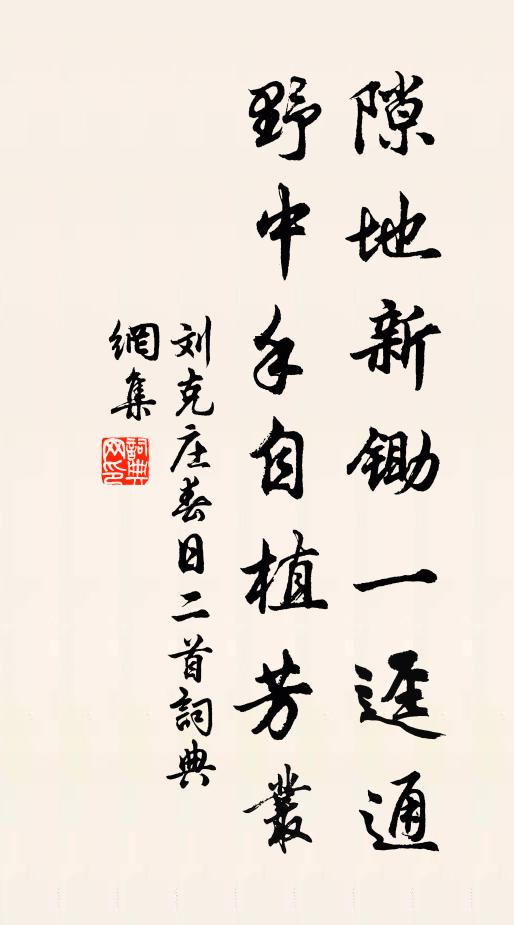 隙地新锄一迳通
野中手自植芳叢
刘克庄春日二首詞典
網集
詞典网印